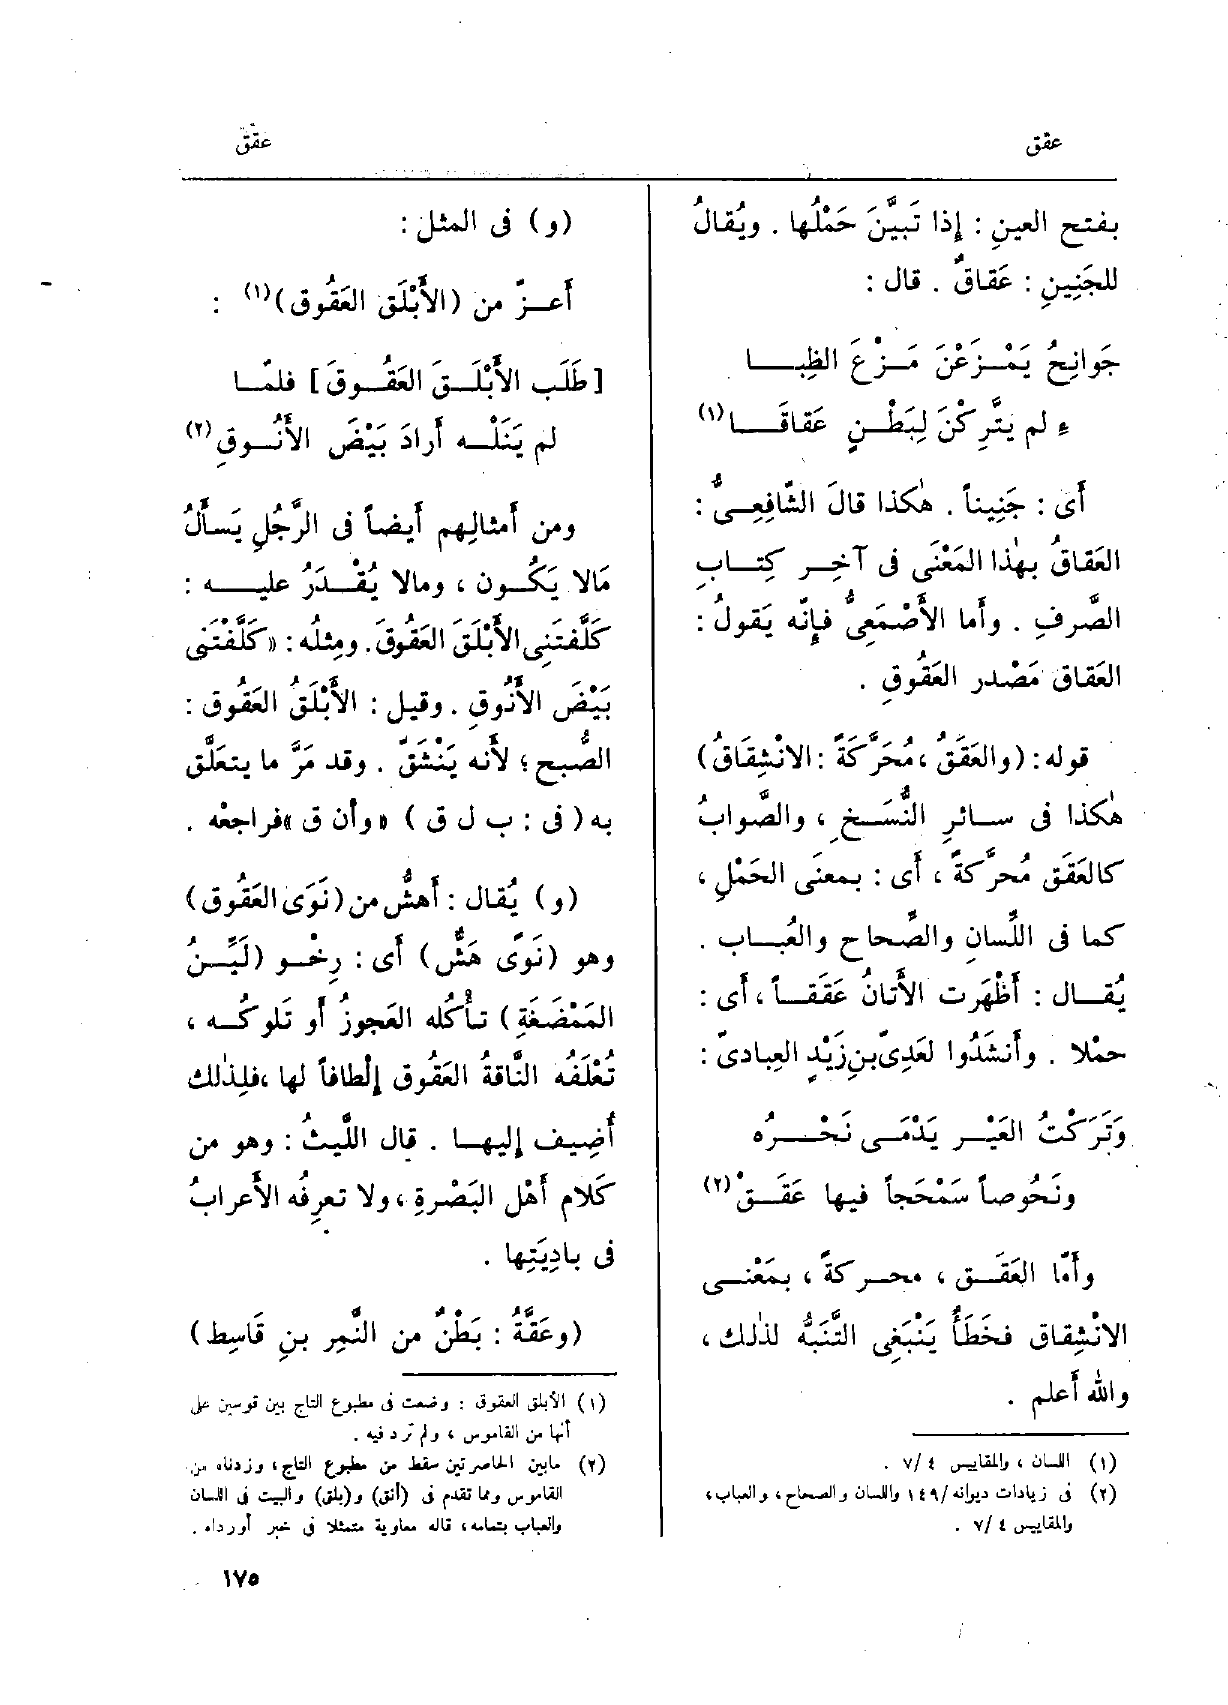 عقق
عقق
بفتح العينِ : إِذا تَبيَّنَ حَمْلُها . ويُقالُ
للجَنِينِ : عَقاقٌ . قال :
جَوانِحُ يَمْــزَعْنَ مَــزْعَ الظِبــــا
ءِ لم يتَّرِكْنَ لِبَطْــنٍ عَقاقَــــا (١)
أَى : جَنِيناً . هٰكذا قالَ الشّافِعِــىُّ :
العَقاقُ بهٰذا المَعْنَى فى آخِــرِ كِتــابِ
الصَّرفِ . وأَما الأَصْمَعِىُّ فإِنّه يَقولُ :
العَقاق مَصْدر العَقُوقِ .
قوله : (والعَقَقُ ، مُحَرَّكَةً : الانْشِقاقُ)
هٰكذا فى ســائرِ النُّسَــخِ ، والصَّوابُ
كالعَقَق مُحرَّكةً ، أَى : بمعنَى الحَمْلِ ،
كما فى اللِّسانِ والصِّحاح والعُبــاب .
يُقــال : أَظْهَرت الأَتانُ عَقَقــاً ، أَى :
حمْلا . وأَنشَدُوا لعَدِىّ بنِ زَيْدٍ العِبادىّ :
وَتَرَكْتُ العَيْــر يَدْمَــى نَحْــــرُه
ونَحُوصاً سَمْحَجاً فيها عَقَــقْ (٢)
وأَمّا العَقَــق ، محــركةً ، بمَعْنــى
الانْشِقاق فخَطَأٌ يَنْبَغِى التَّنَبُّه لذٰلك ،
والله أَعلم .
(١) اللسان ، والمقاييس ٤ /٧ .
(٢) فى زيادات ديوانه /١٤٩ واللسان والصحاح ، والعباب ،
والمقاييس ٤ /٧ .
(و) فى المثل :
أَعــزّ من (الأَبْلَق العَقُوق) (١) :
[ طَلَب الأَبْلَــقَ العَقُــوقَ ] فلمّــا
لم يَنَلْــه أَرادَ بَيْضَ الأَنُــوقِ (٢)
ومن أَمثالِهم أَيضاً فى الرَّجُلِ يَسأَلُ
مَالا يَكُــون ، ومالا يُقْــدَرُ عليــــه :
كَلَّفتَنِى الأَبْلَقَ العَقُوقَ. ومِثلُه : « كَلَّفْتَنى
بَيْضَ الأَنُوقِ . وقيل : الأَبْلَقُ العَقُوق :
الصُّبح ؛ لأَنه يَنْشَقّ . وقد مَرَّ ما يتعَلَّق
به ( فى : ب ل ق ) « وأَن ق » فراجعْه .
(و) يُقال : أَهشُّ من (نَوَى العَقُوق)
وهو (نَوًى هَشٌّ) أَى : رِخْــو (لَيِّــنُ
المَمْضَغَةِ) تأْكُله العَجوزُ أَو تَلوكُــه ،
تُعْلَفُه النَّاقةُ العَقُوق إِلْطافاً لها ،فلِذٰلك
أُضِيف إِليهــا . قال اللَّيثُ : وهو من
كَلام أَهْل البَصْرةِ ، ولا تعرِفُه الأَعرابُ
فى بادِيَتِها .
(وعَقَّةُ : بَطْنٌ من النَّمِر بنِ قَاسِط)
(١) الأبلق العقوق : وضعت فى مطبوع التاج بين قوسين على
أنها من القاموس ، ولم ترد فيه .
(٢) مابين الحاصرتين سقط من مطبوع التاج ، وزدناه من
القاموس ومما تقدم فى (أنق) و(بلق) والبيت فى اللسان
والعباب بتمامه ، قاله معاوية متمثلا فى خبر أورداه .
١٧٥